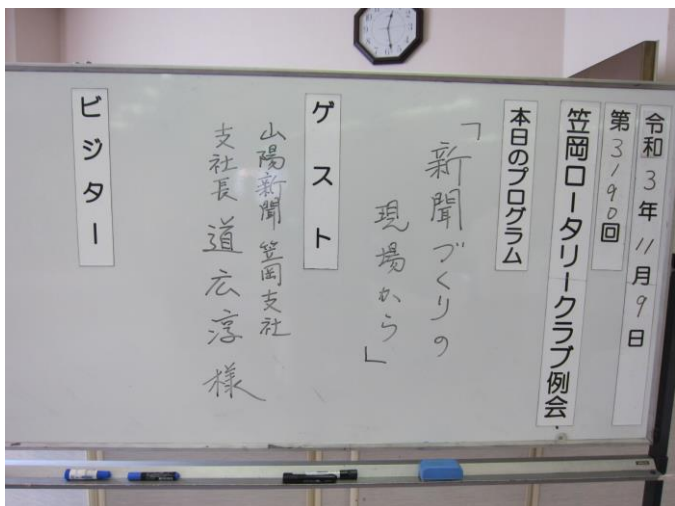 令和3年11月9日
第3190回
笠岡ロータリークラブ例会
本日のプログラム
「新聞づくりの
現場から」
ゲスト
山陽新聞 笠岡支社
支社長 道広淳様
ビジター